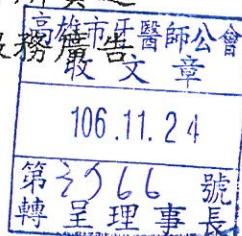 服務廣告
高雄市牙醫師公會
收文章
106.11.24
第3966號
轉呈理事長